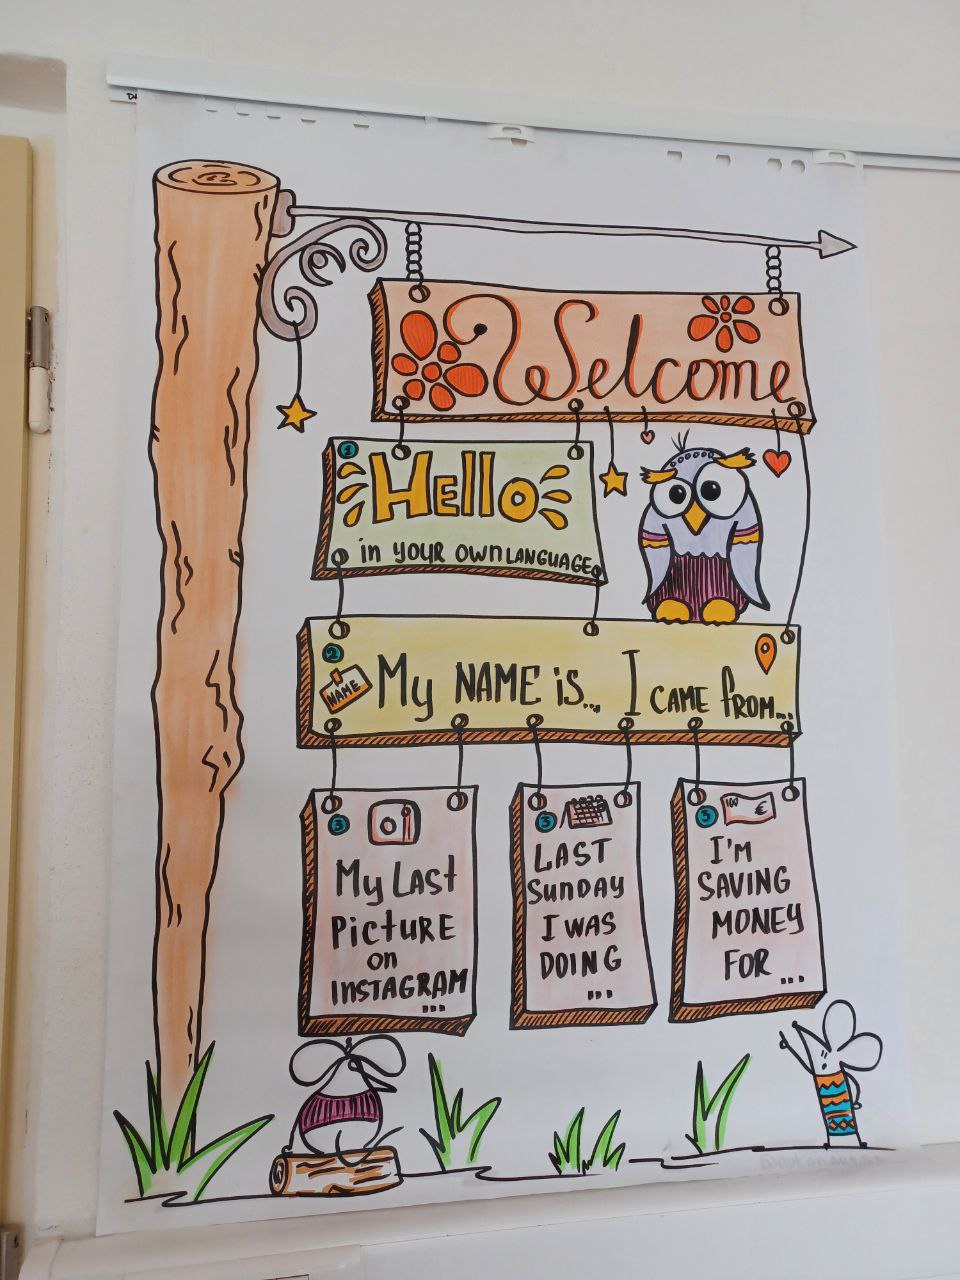 Welcome
1
Hello
in your own LANGUAGE
2
NAME
My NAME is... I CAME from...
3
My Last
Picture
on
INSTAGRAM
...
3
LAST
Sunday
I WAS
DOING
...
3
100 €
I'M
SAVING
MONEY
FOR ...